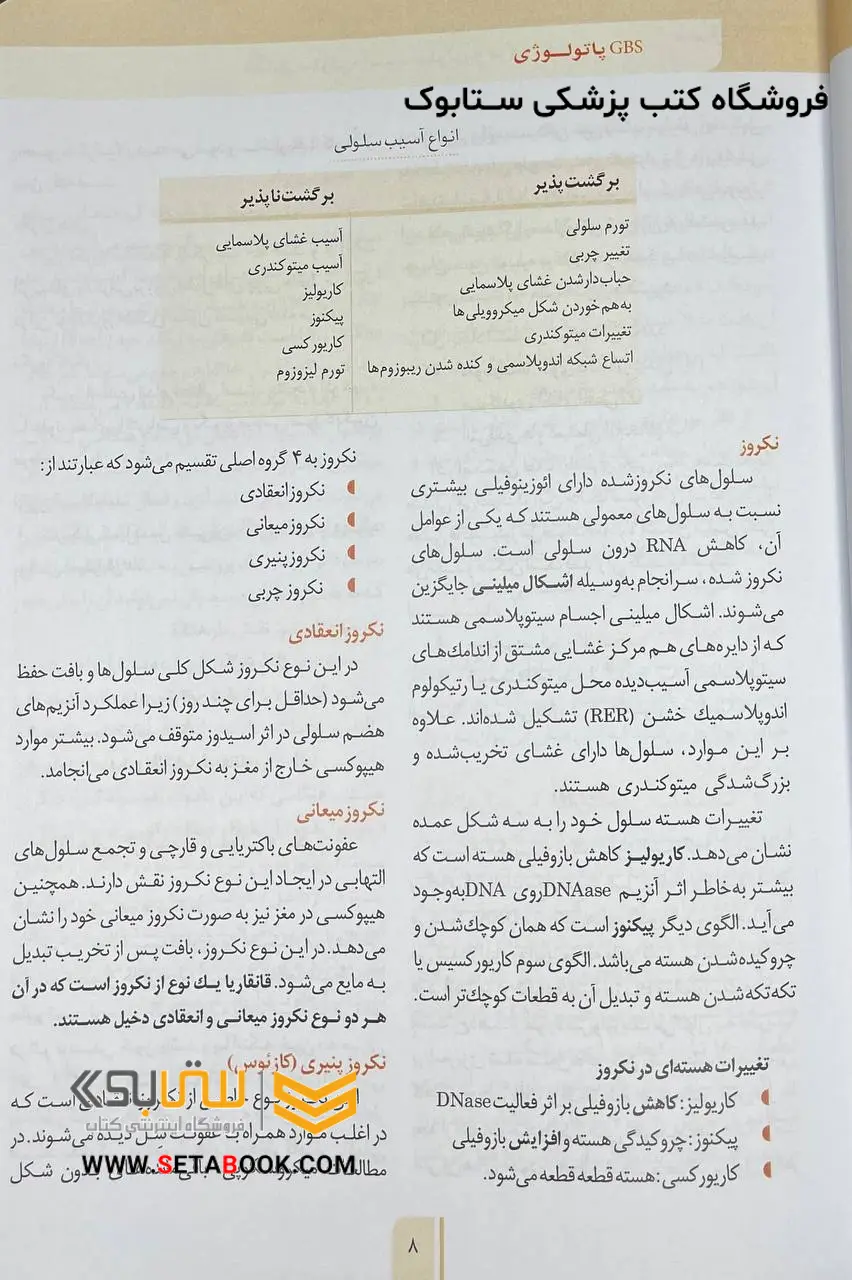 GBS پاتولـوژی
فروشگاه کتب پزشکی ستابوک
انواع آسیب سلولی
برگشت‌پذیر
برگشت‌ناپذیر
تورم سلولی
تغییر چربی
حباب‌دارشدن غشای پلاسمایی
به‌هم‌خوردن شکل میکروویلی‌ها
تغییرات میتوکندری
اتساع شبکه اندوپلاسمی و کنده شدن ریبوزوم‌ها
آسیب غشای پلاسمایی
آسیب میتوکندری
کاریولیز
پیکنوز
کاریورکسی
تورم لیزوزوم
نکروز
سلول‌های نکروزشده دارای ائوزینوفیلی بیشتری
نسبت به سلول‌های معمولی هستند که یکی از عوامل
آن، کاهش RNA درون سلولی است. سلول‌های
نکروز شده، سرانجام به‌وسیله اشکال میلینی جایگزین
می‌شوند. اشکال میلینی اجسام سیتوپلاسمی هستند
که از دایره‌های هم مرکز غشایی مشتق از اندامك‌های
سیتوپلاسمی آسیب‌دیده محل میتوکندری یا رتیکولوم
اندوپلاسمیك خشن (RER) تشکیل شده‌اند. علاوه
بر این موارد، سلول‌ها دارای غشای تخریب‌شده و
بزرگ‌شدگی میتوکندری هستند.
تغییرات هسته سلول خود را به سه شکل عمده
نشان می‌دهد. کاریولیز کاهش بازوفیلی هسته است که
بیشتر به‌خاطر اثر آنزیم DNAase روی DNA به‌وجود
می‌آید. الگوی دیگر پیکنوز است که همان کوچك‌شدن و
چروکیده‌شدن هسته می‌باشد. الگوی سوم کاریورکسیس یا
تکه‌تکه‌شدن هسته و تبدیل آن به قطعات کوچك‌تر است.
تغییرات هسته‌ای در نکروز
کاریولیز: کاهش بازوفیلی بر اثر فعالیت DNase
پیکنوز: چروکیدگی هسته و افزایش بازوفیلی
کاریورکسی: هسته قطعه قطعه می‌شود.
نکروز به ۴ گروه اصلی تقسیم می‌شود که عبارتند از:
نکروز انعقادی
نکروز میعانی
نکروز پنیری
نکروز چربی
نکروز انعقادی
در این نوع نکروز شکل کلی سلول‌ها و بافت حفظ
می‌شود (حداقل برای چند روز) زیرا عملکرد آنزیم‌های
هضم سلولی در اثر اسیدوز متوقف می‌شود. بیشتر موارد
هیپوکسی خارج از مغز به نکروز انعقادی می‌انجامد.
نکروز میعانی
عفونت‌های باکتریایی و قارچی و تجمع سلول‌های
التهابی در ایجاد این نوع نکروز نقش دارند. همچنین
هیپوکسی در مغز نیز به صورت نکروز میعانی خود را نشان
می‌دهد. در این نوع نکروز، بافت پس از تخریب تبدیل
به مایع می‌شود. قانقاریا یك نوع از نکروز است که در آن
هر دو نوع نکروز میعانی و انعقادی دخیل هستند.
نکروز پنیری (کازئوس)
این نوع از نکروز است که
در اغلب موارد همراه با عفونت سل دیده می‌شوند. در
مطالعات میکروسکوپی بدون شکل
ستابوک
فروشگاه اینترنتی کتاب
WWW.SETABOOK.COM
۸